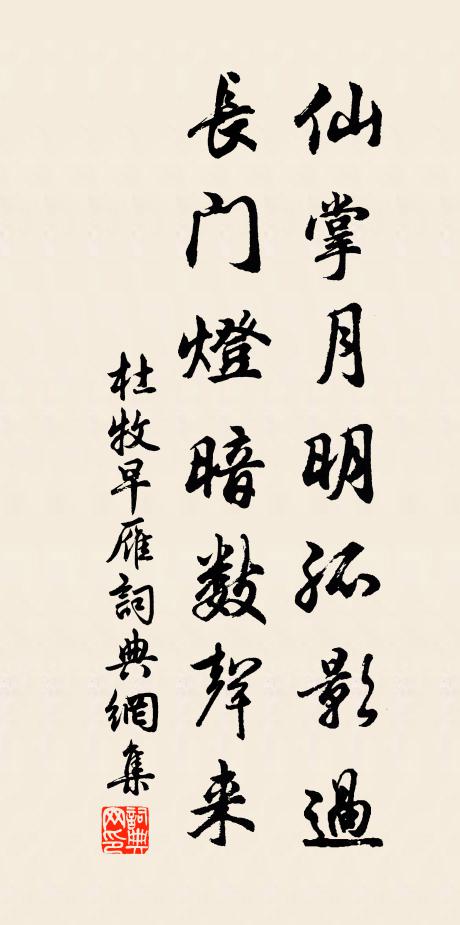 仙掌月明孤影過
長門燈暗數聲来
杜牧早雁詞典網集
詞典网印